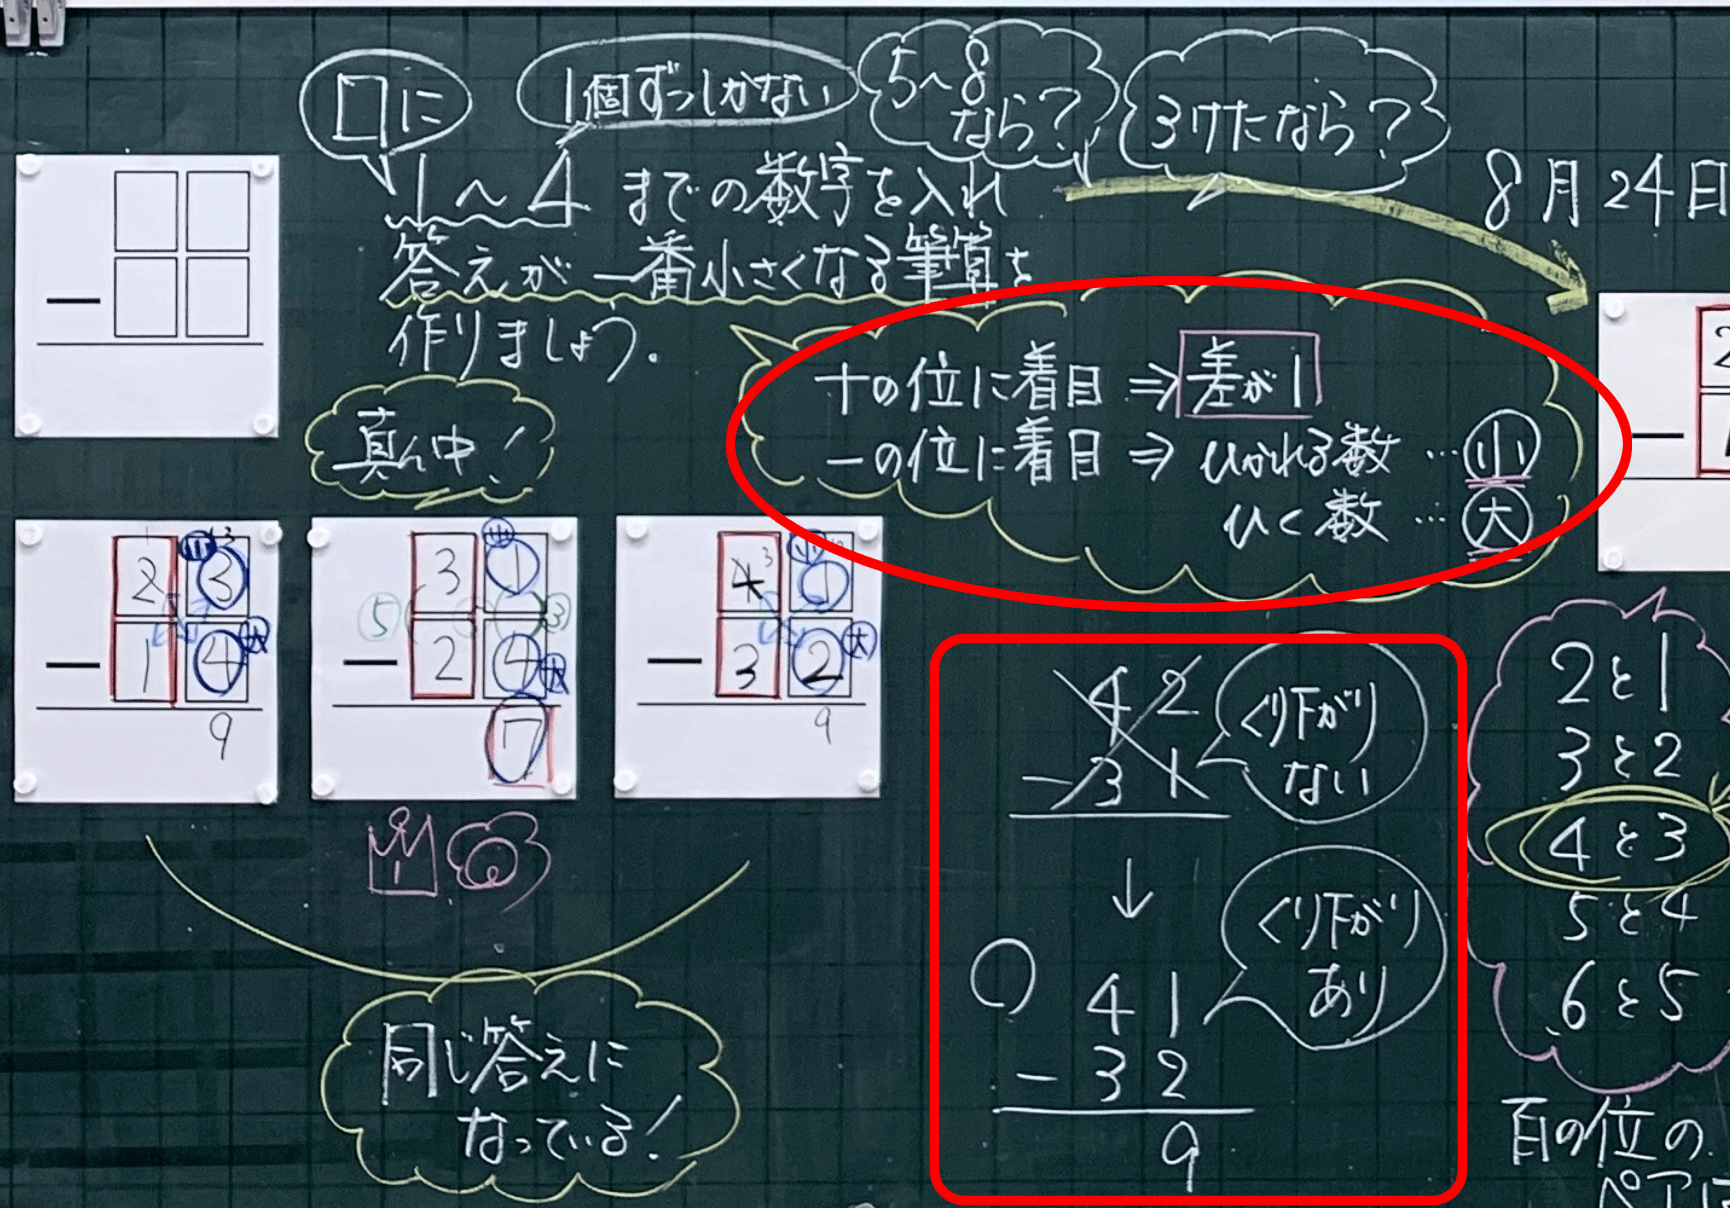 □に
1個ずつしかない
5~8
なら?
3けたなら?
1~4までの数字を入れ
答えが一番小さくなる筆算を
作りましょう。
8月24日
真ん中!
十の位に着目⇒差が1
一の位に着目⇒ひかれる数…小
ひく数…大
小
2 3
大
- 1 4
9
小
3 1
5 3
大
- 2 4
7
小
4 3 1
大
- 3 2
9
1
同じ答えに
なっている!
4 2
- 3 1
くり下がり
ない
↓
くり下がり
あり
○ 4 1
- 3 2
9
2
-
2と1
3と2
4と3
5と4
6と5
百の位の
ペアは